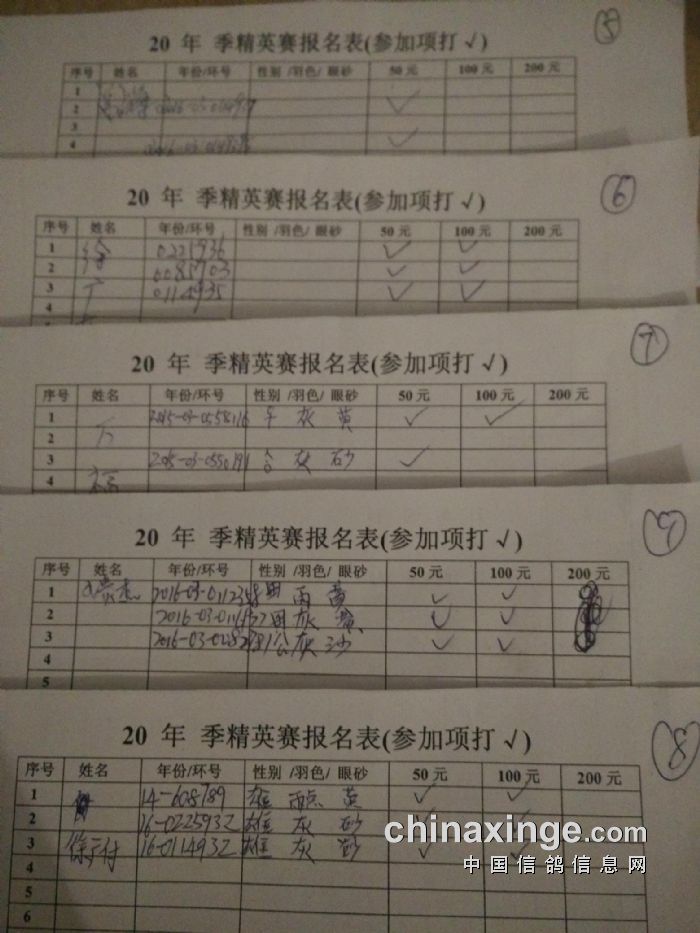 ⑤
20 年 季精英赛报名表(参加项打 √)
序号 姓名 年份/环号 性别 /羽色/ 眼砂 50 元 100 元 200 元
1
2 √
3
4 √
⑥
20 年 季精英赛报名表(参加项打 √)
序号 姓名 年份/环号 性别 /羽色/ 眼砂 50 元 100 元 200 元
1 徐 0221936 √ √
2 0085703 √ √
3 0114935 √ √
⑦
20 年 季精英赛报名表(参加项打 √)
序号 姓名 年份/环号 性别 /羽色/ 眼砂 50 元 100 元 200 元
1 2015-03-0558116 灰 黄 √ √
2
3 2015-03-0550191 灰 砂 √
4
⑨
20 年 季精英赛报名表(参加项打 √)
序号 姓名 年份/环号 性别 /羽色/ 眼砂 50 元 100 元 200 元
1 雨 黄 √ √
2 灰 黄 √ √
3 公 灰 沙 √ √
4
5
⑧
20 年 季精英赛报名表(参加项打 √)
序号 姓名 年份/环号 性别 /羽色/ 眼砂 50 元 100 元 200 元
1 14-608789 雄 雨点 黄 √ √
2 16-0225932 雄 灰 砂 √
3 16-0114932 雄 灰 砂 √ √
4
5
6
chinaxinge.com
中国信鸽信息网